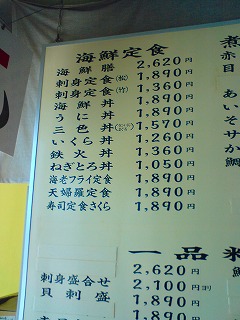 海鮮定食
海鮮膳 2,620円
刺身定食(松) 1,890円
刺身定食(竹) 1,360円
海鮮丼 1,890円
うに丼 1,890円
三色丼 1,570円
いくら丼 1,260円
鉄火丼 1,360円
ねぎとろ丼 1,050円
海老フライ定食 1,890円
天婦羅定食 1,890円
寿司定食さくら 1,890円
一品料
刺身盛合せ 2,620円
貝刺盛 2,100円
1,890円
1,890
煮
赤
目
あ
い
そ
サ
か
鯛